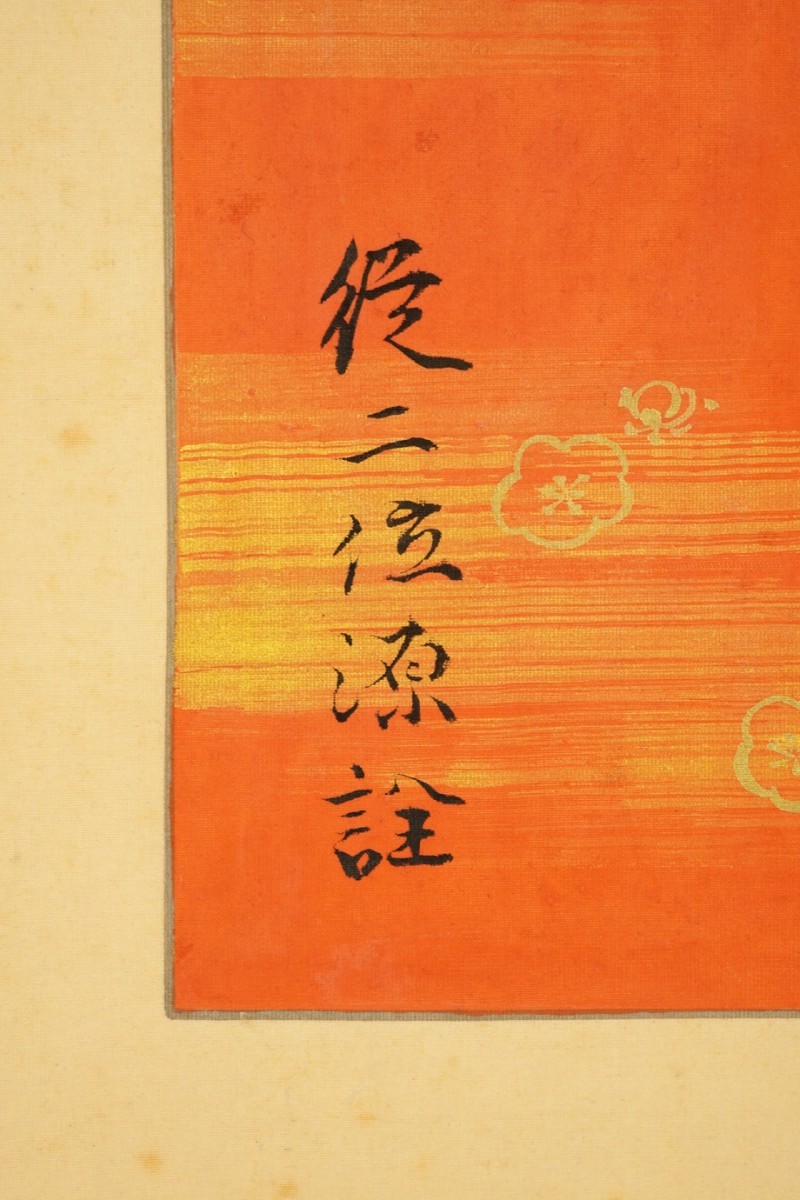 從二位源詮